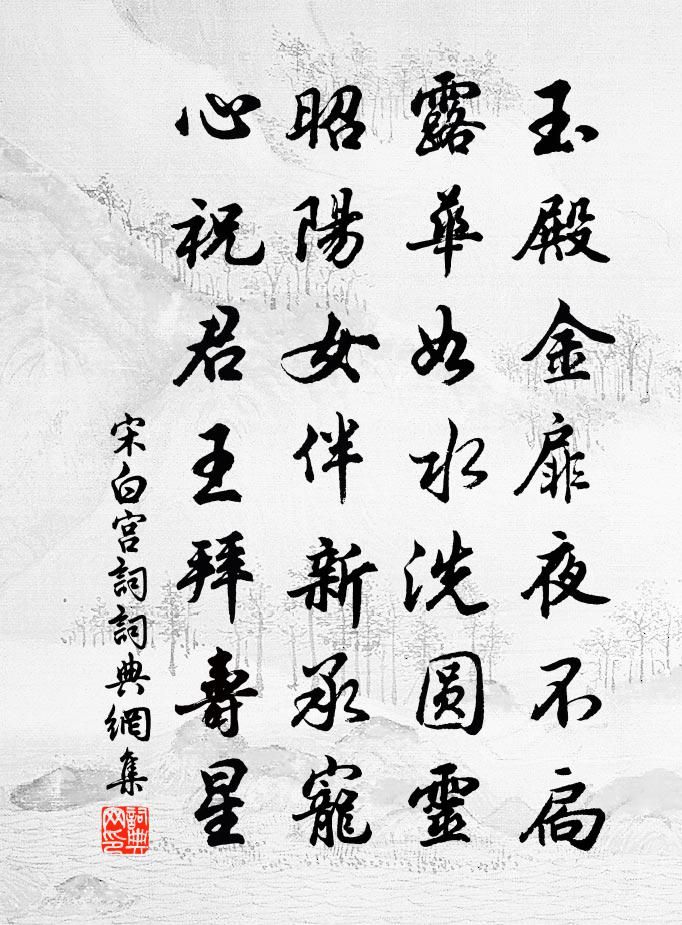 玉殿金扉夜不扃
露華如水洗圆靈
昭陽女伴新承寵
心祝君王拜壽星
宋白宫詞詞典網集
詞典网印